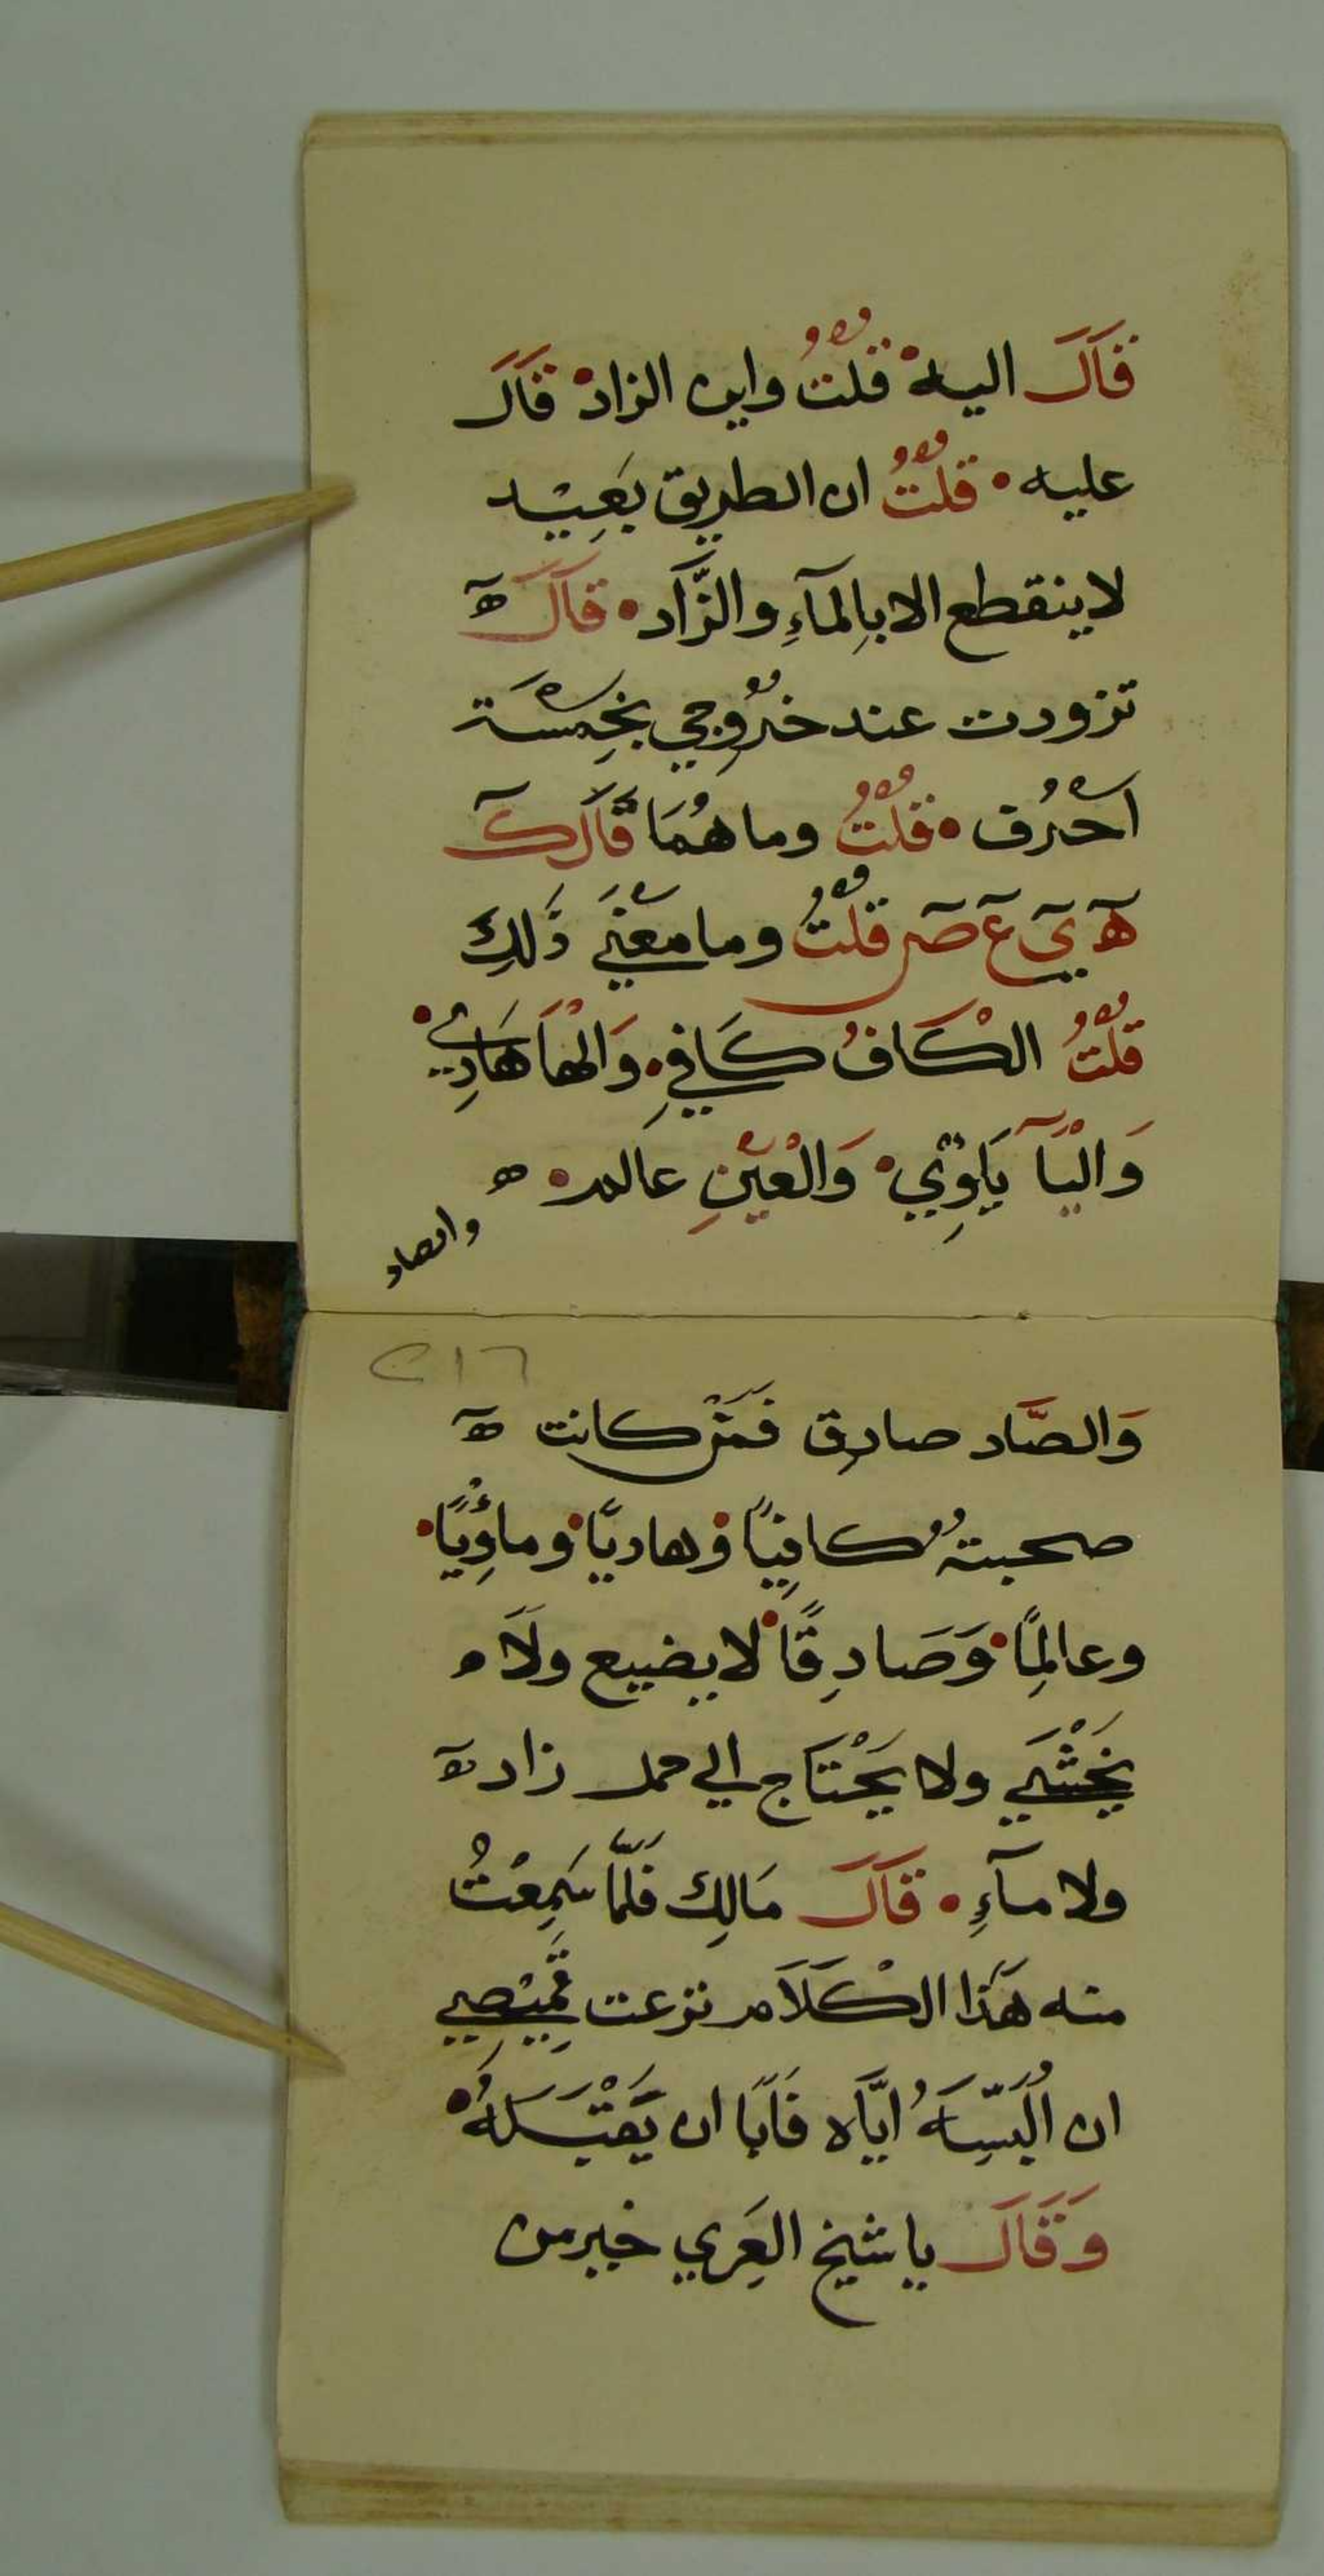 قَالَ اليه قلتُ واين الزاد قَالَ
عليه قلتُ ان الطريق بَعِيْد
لاينقطع الابِالمآءِ والزَّاد قالَ ه
تزودت عند خرُوجي بخِمسَة
اَحْرُف قلتُ وما هُمَا قَالَ ك
ه ي ع ص قلتُ وما معْنَي ذَلِكَ
قلتُ الْكَافُ كَافيِ وَالْهَا هَادِي
وَالْيَا يَاوِي وَالْعَيْنِ عالم ه
والصاد
٢١٦
وَالصَّاد صادِق فَمَنْ كانت ه
صحبتهُ كافِيًا وهاديًا وماوِيًا
وعالِمًا وَصَادِقًا لا يضيع ولَا
يَخْشَي ولا يَحْتَاج الي حمل زاد ه
ولا مآءِ قَالَ مَالِك فَلَمَّا سَمِعْتُ
منه هَذا الْكَلَام نزعت قَمِيْصِي
ان اُلَبِّسَهُ ايَّاه فَابَا ان يَقْبَلهُ
وَقَالَ يا شيخ العَرِي خير من